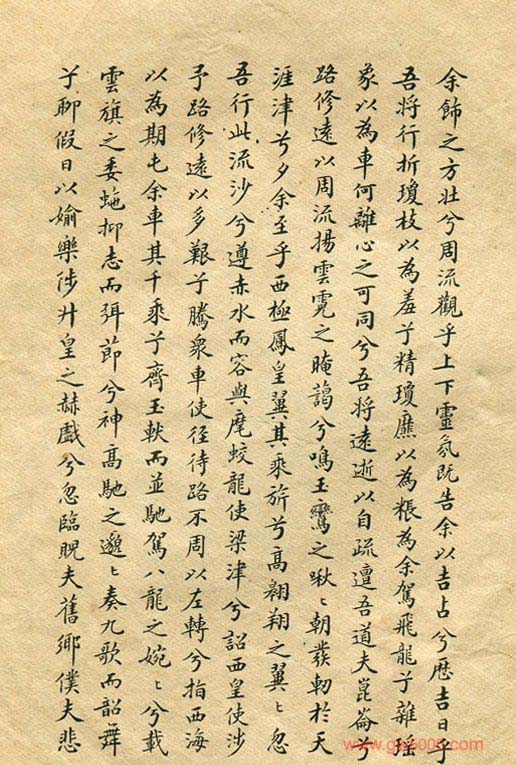 余飾之方壯兮周流觀乎上下靈氛既告余以吉占兮歷吉日乎
吾將行折瓊枝以為羞兮精瓊爢以為粻為余駕飛龍兮雜瑤
象以為車何離心之可同兮吾將遠逝以自疏邅吾道夫崑崙兮
路修遠以周流揚雲霓之晻藹兮鳴玉鸞之啾〻朝發軔於天
涯津兮夕余至乎西極鳳皇翼其乘旂兮高翱翔之翼〻忽
吾行此流沙兮遵赤水而容與麾蛟龍使梁津兮詔西皇使涉
予路修遠以多艱兮騰眾車使徑待路不周以左轉兮指西海
以為期屯余車其千乘兮齊玉軑而並馳駕八龍之婉〻兮載
雲旗之委蛇抑志而弭節兮神高馳之邈〻奏九歌而韶舞
兮聊假日以媮樂陟升皇之赫戲兮忽臨睨夫舊鄉僕夫悲